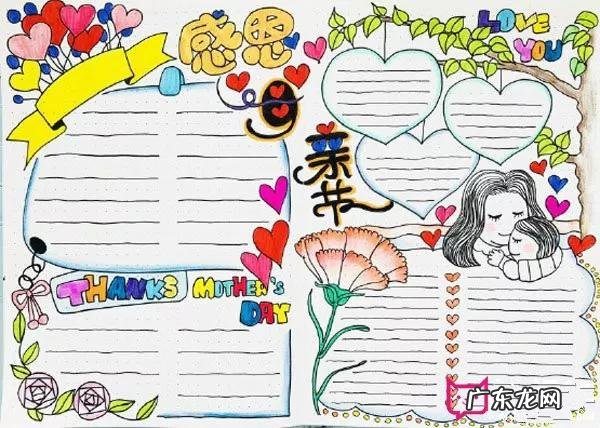 感恩
LOVE
YOU
母
亲
节
THANKS MOTHER'S
DAY
广东龙网